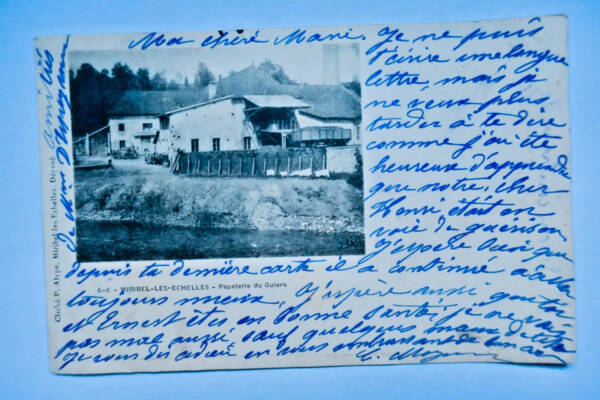 Ma chéré Marie. Je ne puis
t'écrire une longue
lettre, mais je
ne veux plus
tarder à te dire
comme j'ai été
heureuse d'apprendre
que notre cher
Henri était en
voie de guérison
J'espère aussi que
depuis ta dernière carte il a continué à aller
toujours mieux, J'espère aussi que toi
et Ernest êtes en bonne santé, je ne vais
pas mal aussi sauf quelques maux de tête
Je vous dis adieu en vous embrassant de
amitiés
de Mme
6-6 - MIRIBEL-LES-ECHELLES - Papeterie du Guiers
Cliché P. Alype, Miribel-les-Echelles. Déposé